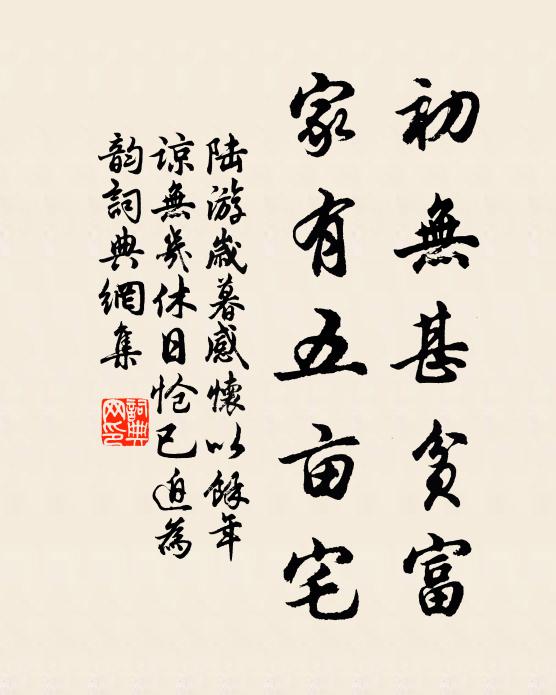 初無甚貧富
家有五亩宅
陆游歲暮感懷以餘年
諒無幾休日怆已迫為
韵詞典網集
詞典网印